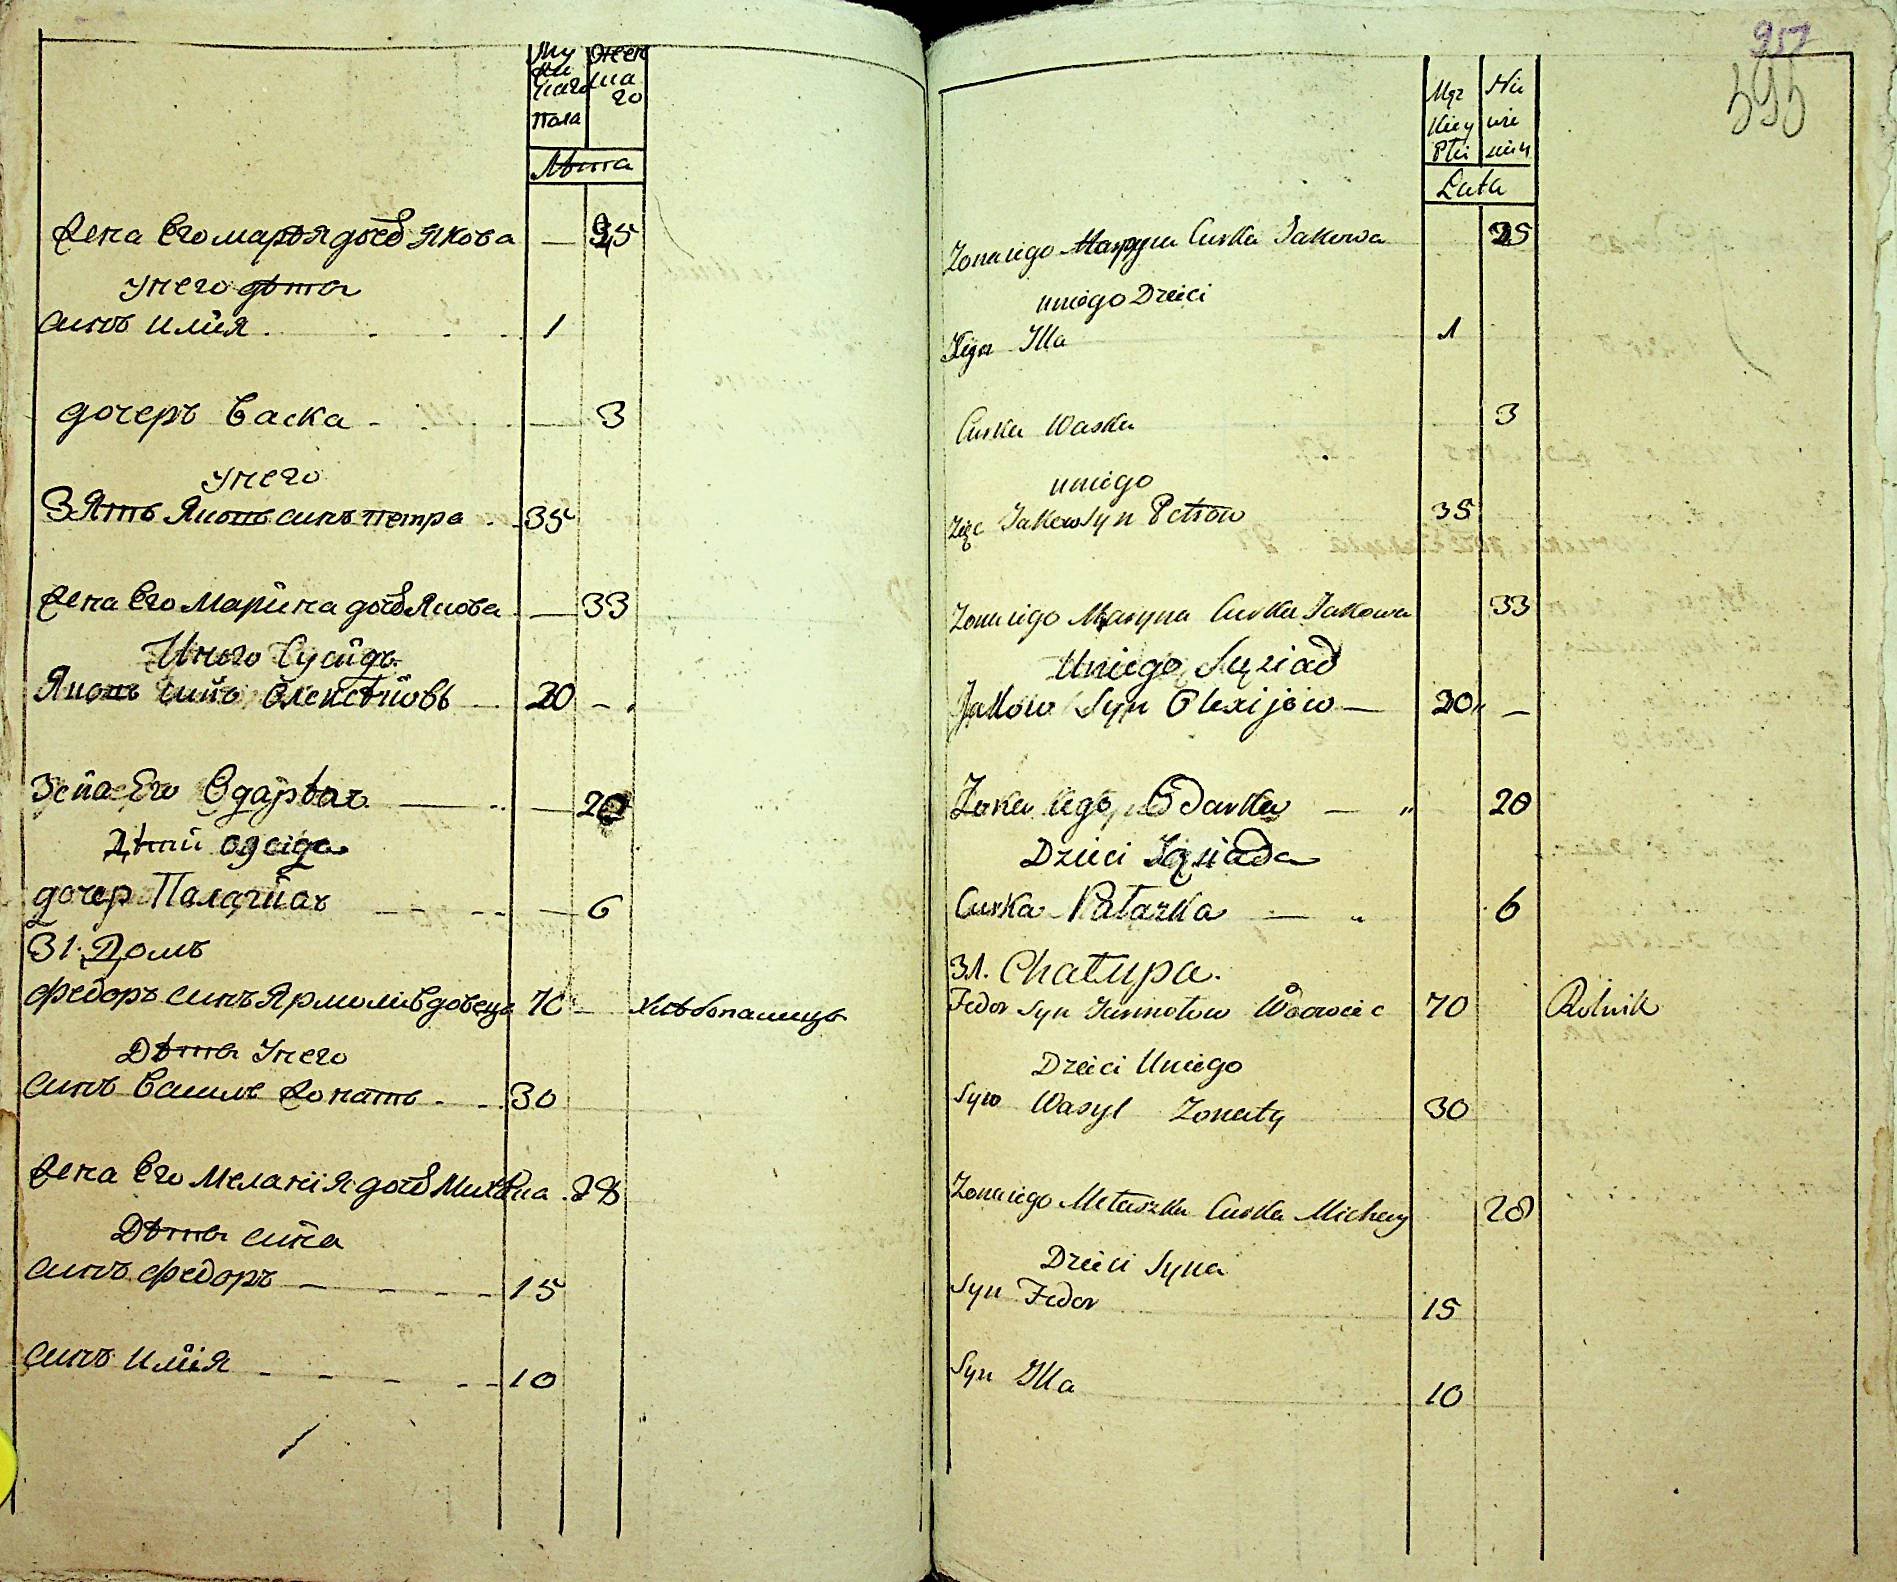 Му
жеска
го
Женска
го
Пола
Лѣта
жена Его марья дочь якова — 25
унего дѣти
синъ илия 1
дочеръ Васка — 3
унего
Зять Яковъ синъ петра 35
жена Его Марина дочь Якова — 33
Унего Сусидъ
Яковъ синъ Олексѣювъ 20 —
Жена Его Одарка — 20
Дѣти
дочер — 6
31. Домъ
Федоръ синъ Ярмоли вдовецъ 70 — хлѣбопашецъ
Дѣти Унего
Синъ Василь жонатъ 30
жена Его Меланія дочь 28
Дѣти сина
Синъ Федоръ — 15
Синъ илия 10
957
395
Męz
kiey
Płci
Nie
wie
Lata
Zona iego Curka Jakowa 25
uniego Dzieci
Illa 1
Curka Waska 3
uniego
Zięc Jakow Syn Petrow 35
Zona iego Maryna Curka Jakowa 33
Uniego Sąziad
Jakow Syn Olexijow — 20 —
Zona iego Odarka — 20
Dzieci Sąsiada
Curka Palazka — 6
31. Chatupa.
Fedor Syn Wdowiec 70 Rolnik
Dzieci Uniego
Syn Wasyl Zonaty 30
Zona iego Melaszka Curka Michay 28
Dzieci Syna
Syn Fedor 15
Syn Illa 10